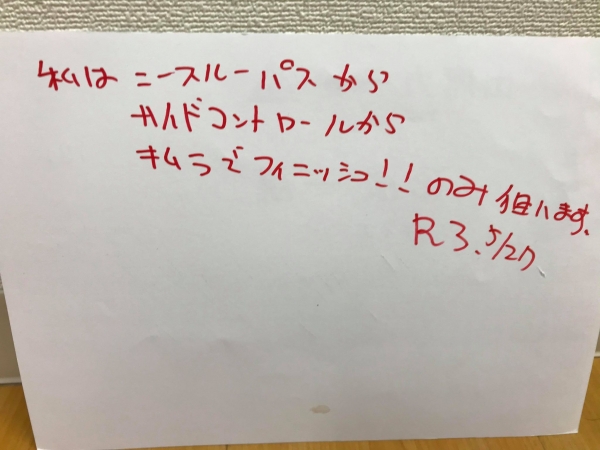 私は ニースルーパスから
サイドコントロールから
キムラでフィニッシュ!!のみ狙います。
R3.5/27